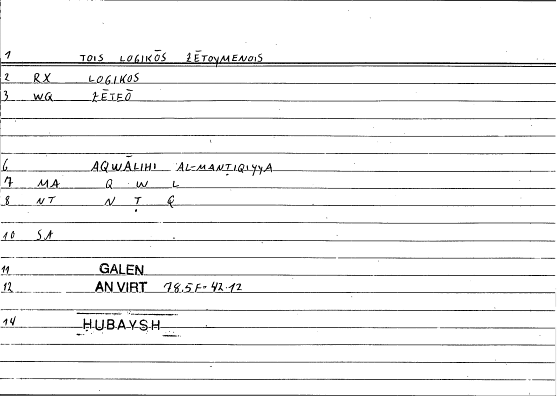 1 TOIS LOGIKŌS ZĒTOYMENOIS
2 RX LOGIKOS
3 WQ ZĒTEŌ
6 AQWĀLIHI AL-MANṬIQIYYA
7 MA Q W L
8 NT N Ṭ Q
10 SA
11 GALEN
12 AN VIRT 78.5F-42.12
14 HUBAYSH